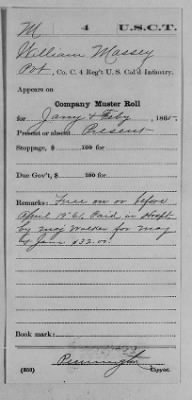 M 4 U.S.C.T.
William Massey
Pvt, Co. C. 4 Reg't U. S. Col'd Infantry.
Appears on
Company Muster Roll
for Jany & Feby, 1865
Present or absent Present
Stoppage, $ 100 for
Due Gov't, $ 100 for
Remarks: Free on or before
April 19" 61, Paid in Hospt
by Maj Walker for May
& June $32.00
Book mark:
Pennington
(858) Copyist.